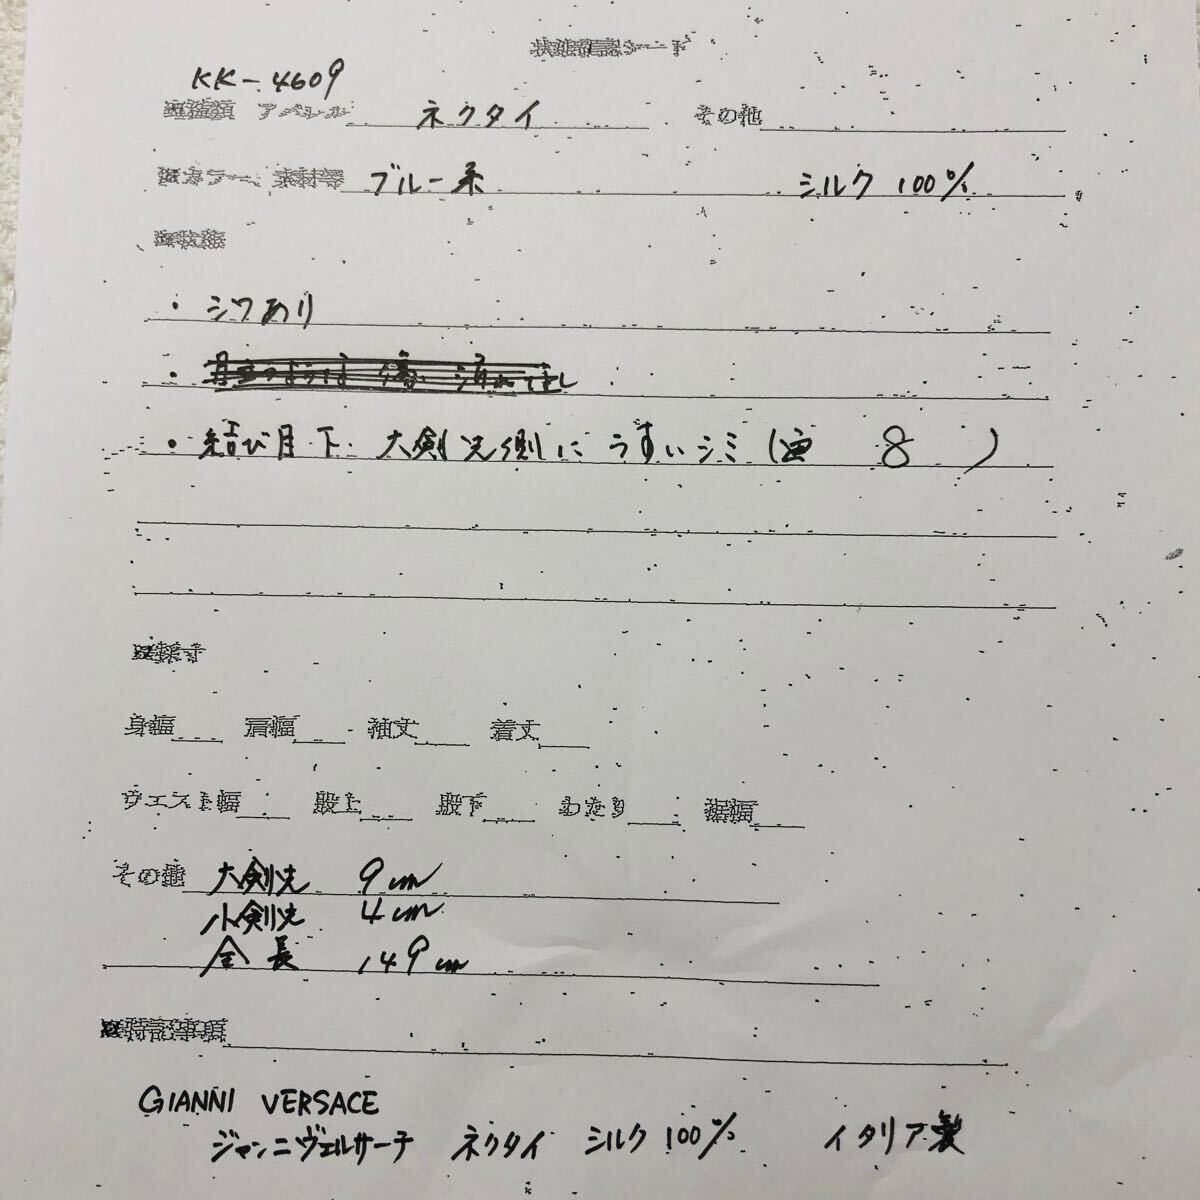 状態確認シート
KK-4609
■種類 アパレル ネクタイ その他
■カラー、素材等 ブルー系 シルク 100%
■状態
・シワあり
・結び目下 大剣先側に うすいシミ (画 8 )
■採寸
身幅 肩幅 袖丈 着丈
ウエスト幅 股上 股下 わたり 裾幅
その他 大剣先 9cm
小剣先 4cm
全長 149cm
■特記事項
GIANNI VERSACE
ジャンニヴェルサーチ ネクタイ シルク 100% イタリア製